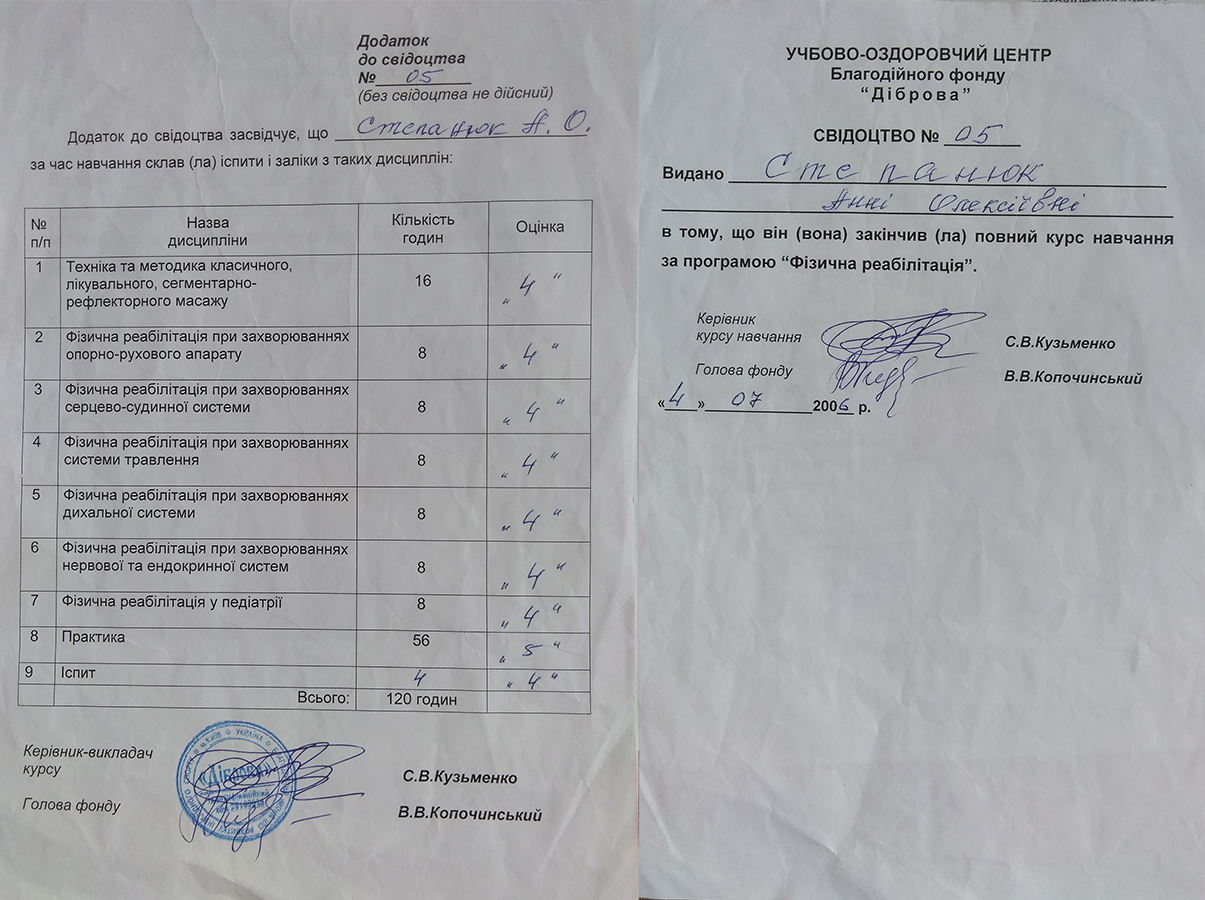 Додаток
до свідоцтва
№ 05
(без свідоцтва не дійсний)
Додаток до свідоцтва засвідчує, що Степанюк А. О.
за час навчання склав (ла) іспити і заліки з таких дисциплін:
№ п/п Назва дисципліни Кількість годин Оцінка
1 Техніка та методика класичного, 16 „4“
лікувального, сегментарно-
рефлекторного масажу
2 Фізична реабілітація при захворюваннях 8 „4“
опорно-рухового апарату
3 Фізична реабілітація при захворюваннях 8 „4“
серцево-судинної системи
4 Фізична реабілітація при захворюваннях 8 „4“
системи травлення
5 Фізична реабілітація при захворюваннях 8 „4“
дихальної системи
6 Фізична реабілітація при захворюваннях 8 „4“
нервової та ендокринної систем
7 Фізична реабілітація у педіатрії 8 „4“
8 Практика 56 „5“
9 Іспит 4 „4“
Всього: 120 годин
Керівник-викладач
курсу С.В.Кузьменко
Голова фонду В.В.Копочинський
м.Київ УКРАЇНА
«Діброва»
УЧБОВО-ОЗДОРОВЧИЙ ЦЕНТР
Благодійного фонду
“Діброва”
СВІДОЦТВО № 05
Видано Степанюк
Анні Олексіївні
в тому, що він (вона) закінчив (ла) повний курс навчання
за програмою “Фізична реабілітація”.
Керівник
курсу навчання С.В.Кузьменко
Голова фонду В.В.Копочинський
«4» 07 2006 р.